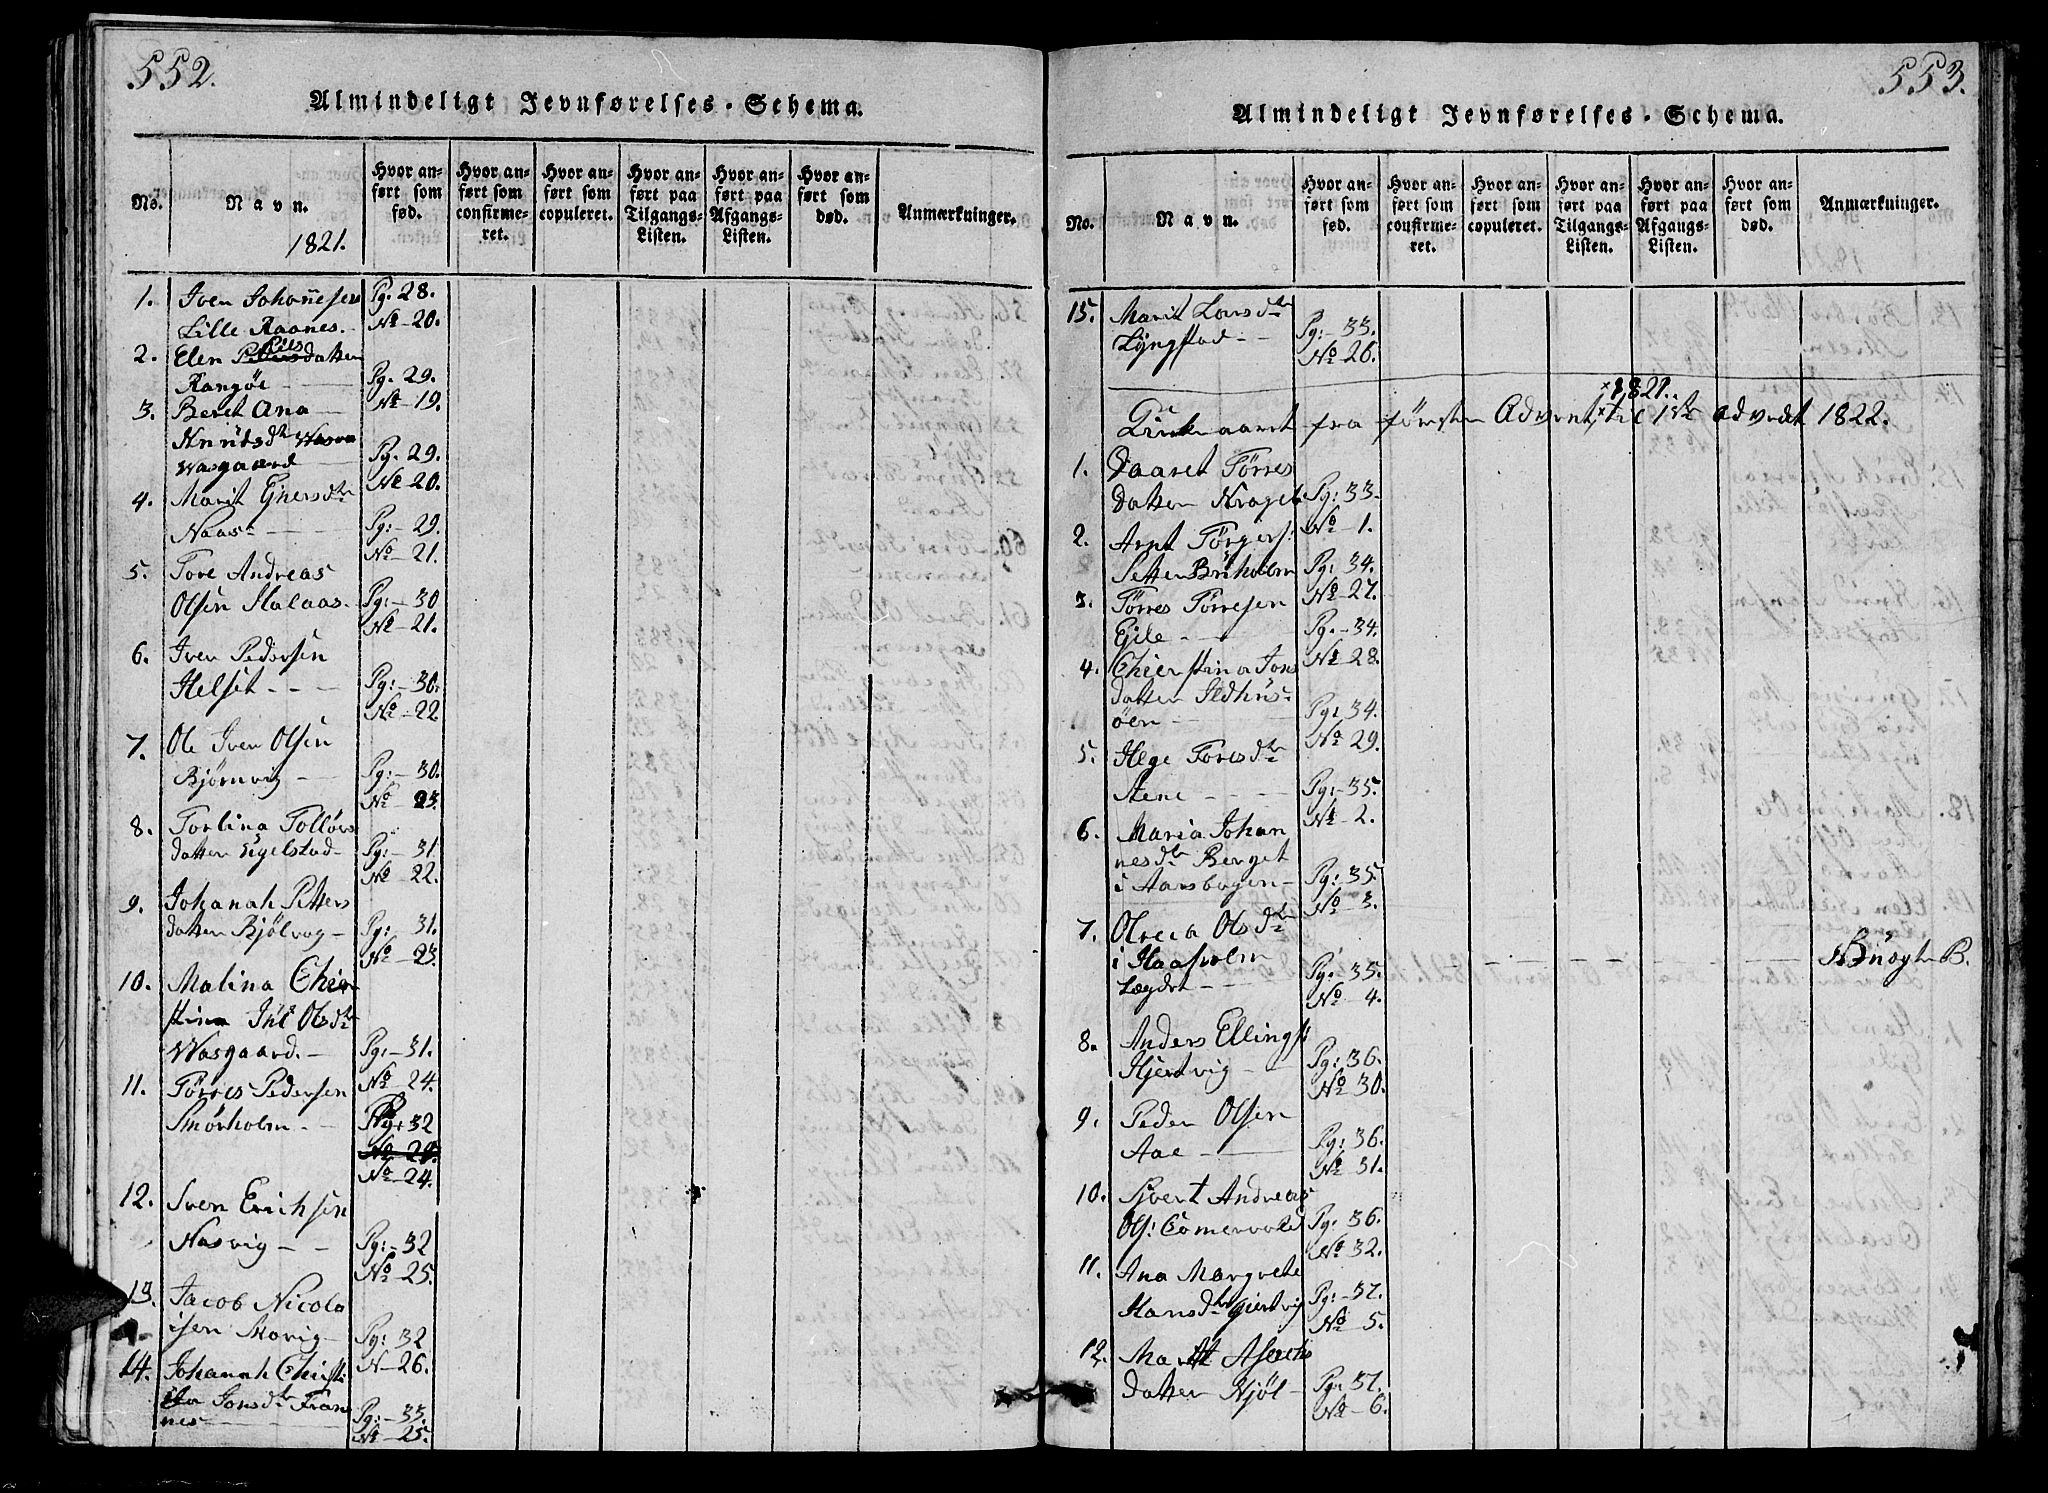 552.
Almindeligt Jevnførelses-Schema.
No.
Navn.
1821.
Hvor anført som fød.
Hvor anført som confirmeret.
Hvor anført som copuleret.
Hvor anført paa Tilgangs-Listen.
Hvor anført paa Afgangs-Listen.
Hvor anført som død.
Anmærkninger.
1. Iver Johannesen Pg. 28.
Lille Raanes. No 20.
2. Elen datter
Rangöe Pg. 29.
3. Beret Ana No 19.
Knudsdtr
Wasgaard Pg. 29.
No 20.
4. Marit Ehersdtr
Naas Pg: 29.
No 21.
5. Tore Andreas
Olsen Halaas. Pg: 30
No 21.
6. Iver Pedersen
Helset Pg: 30.
No 22
7. Ole Iver Olsen
Bjørnvig Pg: 30.
No 23.
8. Torlina Tolløvs
datter Egelstad Pg: 31
No 22.
9. Johanah Petters
datter Bjölvog Pg: 31.
No 23.
10. Malina Chier
stina Olsdtr
Wasgaard. Pg: 31.
No 24.
11. Törres Pedersen
Smörholm Pg: 32
No 24.
12. Sven Erichsen
Nasvig Pg: 32
No 25.
13. Jacob Nicola
isen Skorig Pg: 32
N 26.
14. Johanah Christi
Jonsdtr Fran
nes Pg: 33.
No 25.
553.
Almindeligt Jevnførelses-Schema.
No.
Navn.
Hvor anført som fød.
Hvor anført som confirmeret.
Hvor anført som copuleret.
Hvor anført paa Tilgangs-Listen.
Hvor anført paa Afgangs-Listen.
Hvor anført som død.
Anmærkninger.
15. Marit Larsdtr
Lyngstad Pg: 33.
No 26.
×1821.
Kirkeaaret fra førsten Advent,× til 1ste Advedt 1822.
1. Daaret Törres
datter Kraget Pg: 33.
No 1.
2. Arnt Törgers:
Setter Pg: 34.
No 27.
3. Törres Törresen
Ejde Pg. 34.
No 28.
4. Chierstina Jons
datter Ildhus
öen Pg: 34.
No 29.
5. Helge Toresdtr
Stene Pg: 35.
No 2.
6. Maria Johan
nesdtr Berget
i Aarsbogen Pg: 35.
No 3.
7. Olreia Olsdtr
i Haaholm
Lægdet Pg: 35. B.
No 4.
8. Anders Ellings:
Hjertvig Pg: 36.
No 30.
9. Peder Olsen
Aae Pg: 36.
No 31.
10. Sivert Andreas
Ols: Comervold Pg: 36.
No 32.
11. Ana Margrete
Hansdtr Giertvig Pg: 37.
No 5.
12. Marit Asachs
datter Kjöl Pg: 37.
No 6.